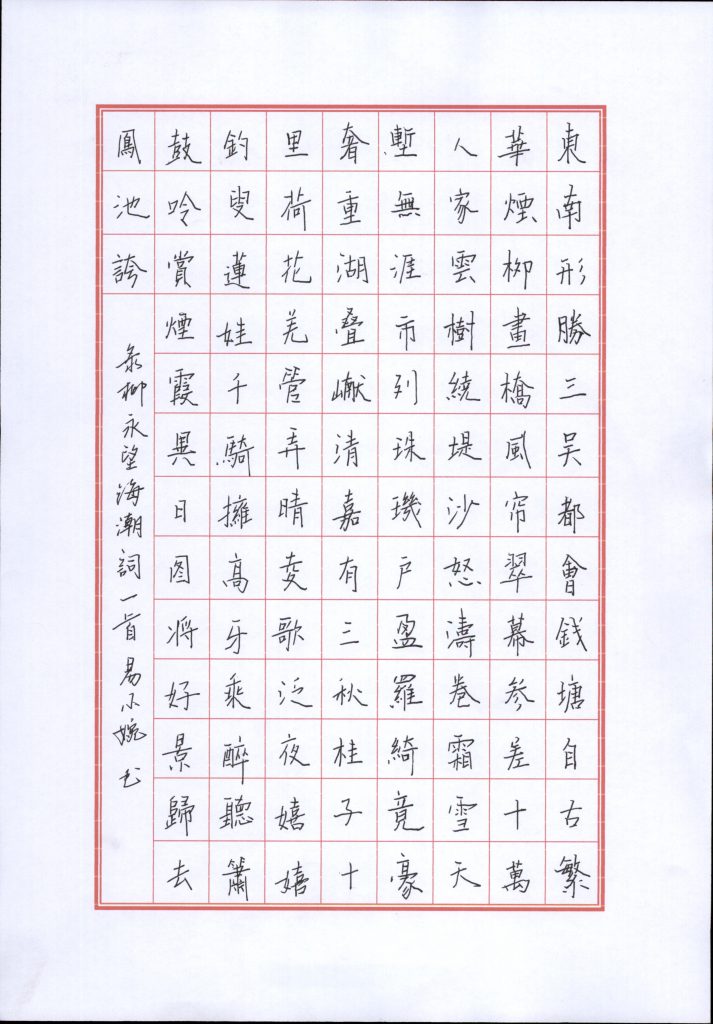 東南形勝三吴都會錢塘自古繁
華煙柳畫橋風帘翠幕参差十萬
人家雲樹繞堤沙怒濤卷霜雪天
塹無涯市列珠璣户盈羅綺竟豪
奢重湖叠巘清嘉有三秋桂子十
里荷花羌管弄晴夌歌泛夜嬉嬉
釣叟蓮娃千騎擁高牙乘醉聽簫
鼓吟賞煙霞異日图将好景歸去
鳳池誇
录柳永望海潮詞一首 易小婉书